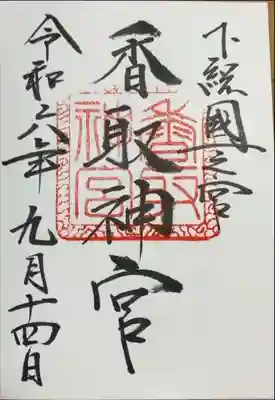 下総國一之宮
香取神宮
香取
神宮
令和六年 九月十四日